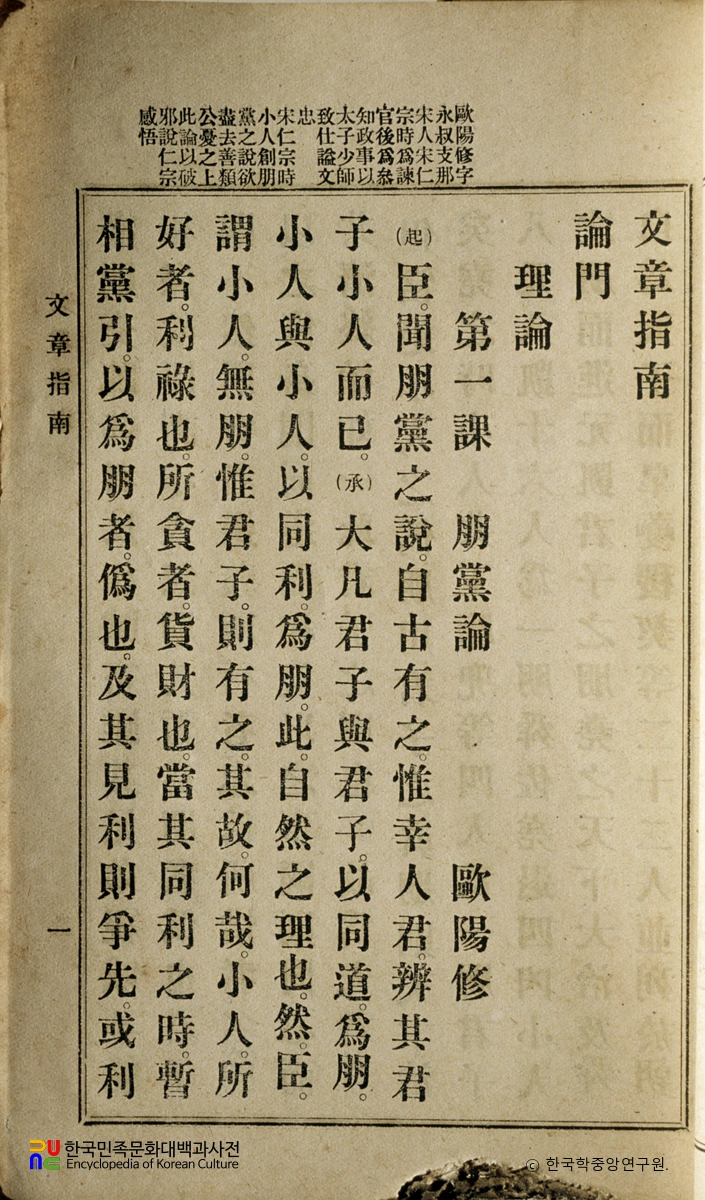 歐陽修字
永叔支那
宋人宋仁
宗時爲諫
官後爲叅
知政事以
太子少師
致仕謚文
忠
宋仁宗時
小人創朋
黨之說欲
盡去善類
公憂之上
此論以破
邪說仁宗
感悟
文章指南
論門
理論
第一課 朋黨論 歐陽修
(起)臣。聞朋黨之說。自古有之。惟幸人君。辨其君
子小人而已。(承)大凡君子與君子。以同道。爲朋。
小人與小人。以同利。爲朋。此。自然之理也。然。臣。
謂小人。無朋。惟君子。則有之。其故。何哉。小人。所
好者。利祿也。所貪者。貨財也。當其同利之時。暫
相黨引。以爲朋者。僞也。及其見利則爭先。或利
文章指南 一
한국민족문화대백과사전
Encyclopedia of Korean Culture
© 한국학중앙연구원.